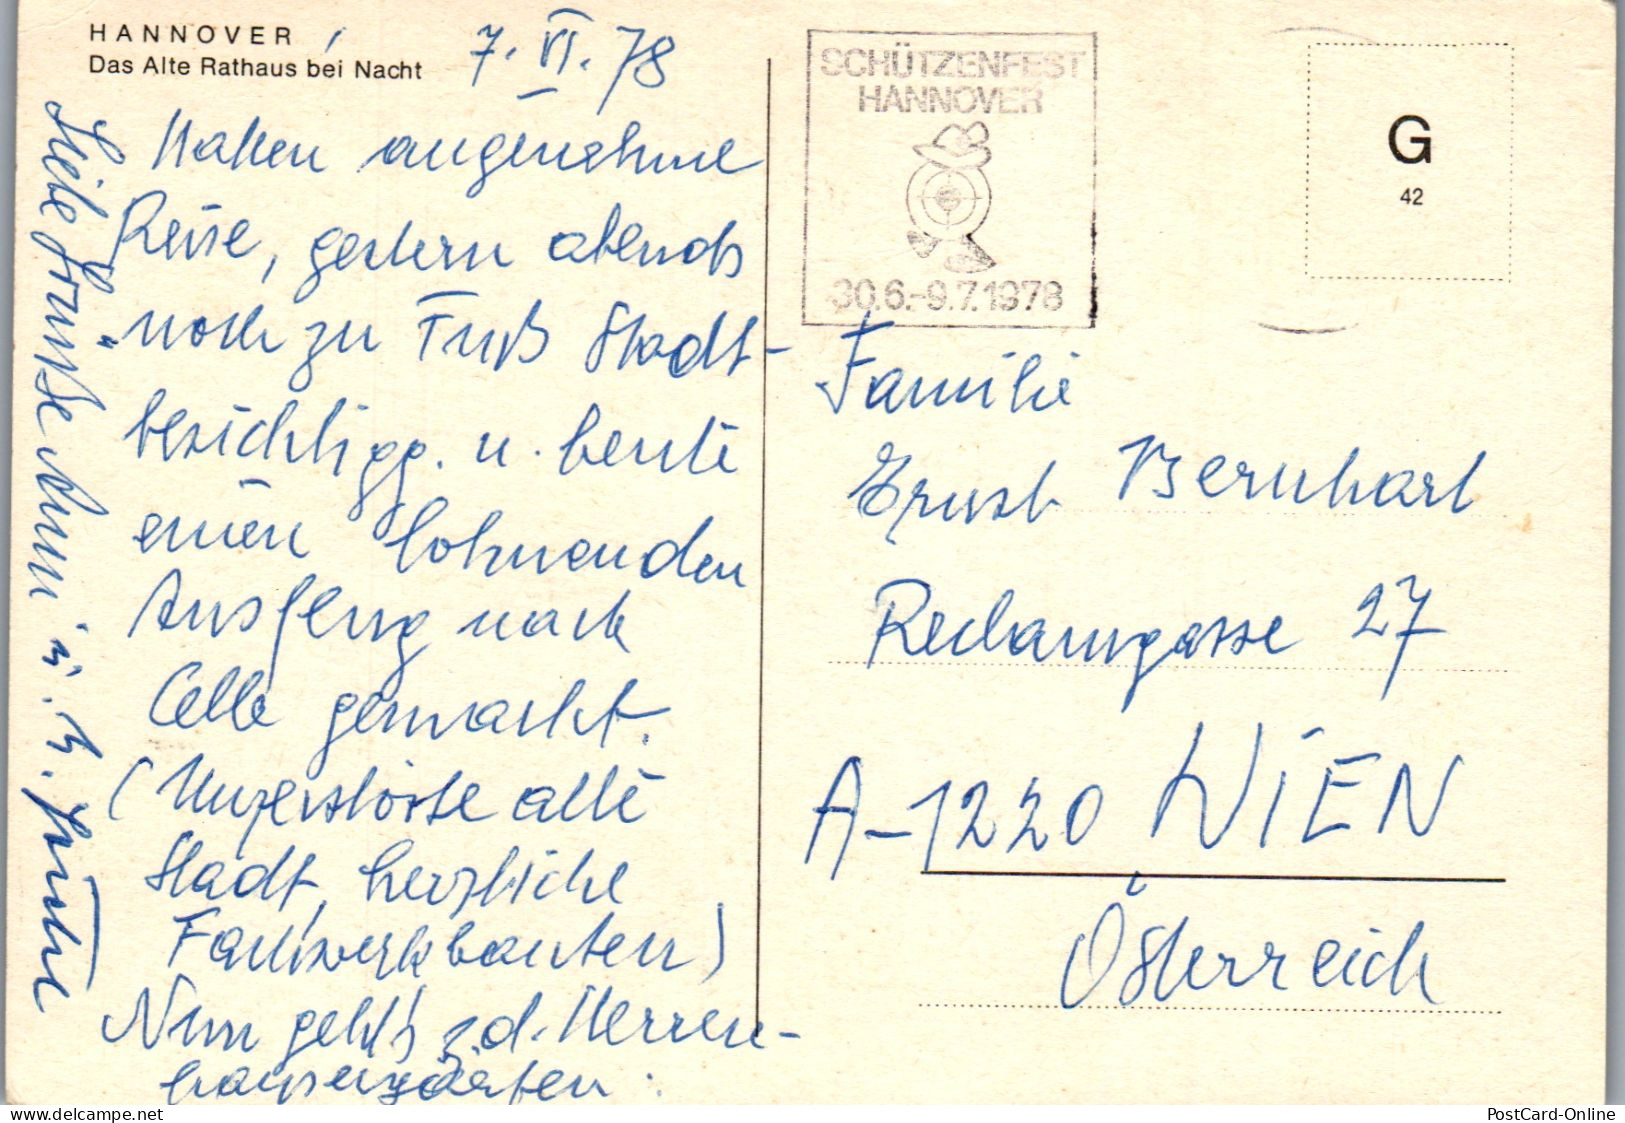 HANNOVER
Das Alte Rathaus bei Nacht
7. VI. 78
Hatten angenehme
Reise, gestern abends
noch zu Fuß Stadt-
besichtigg. u. heute
einen lohnenden
Ausflug nach
Celle gemacht.
(Unzerstörte alte
Stadt, herrliche
Fachwerkbauten)
Nun geht's z. d. Herren-
hausergärten.
Liebe Grüße
SCHÜTZENFEST
HANNOVER
30.6.-9.7.1978
G
42
Familie
Ernst Bernhart
Reclamgasse 27
A-1220 WIEN
Österreich
PostCard-Online
delcampe.net